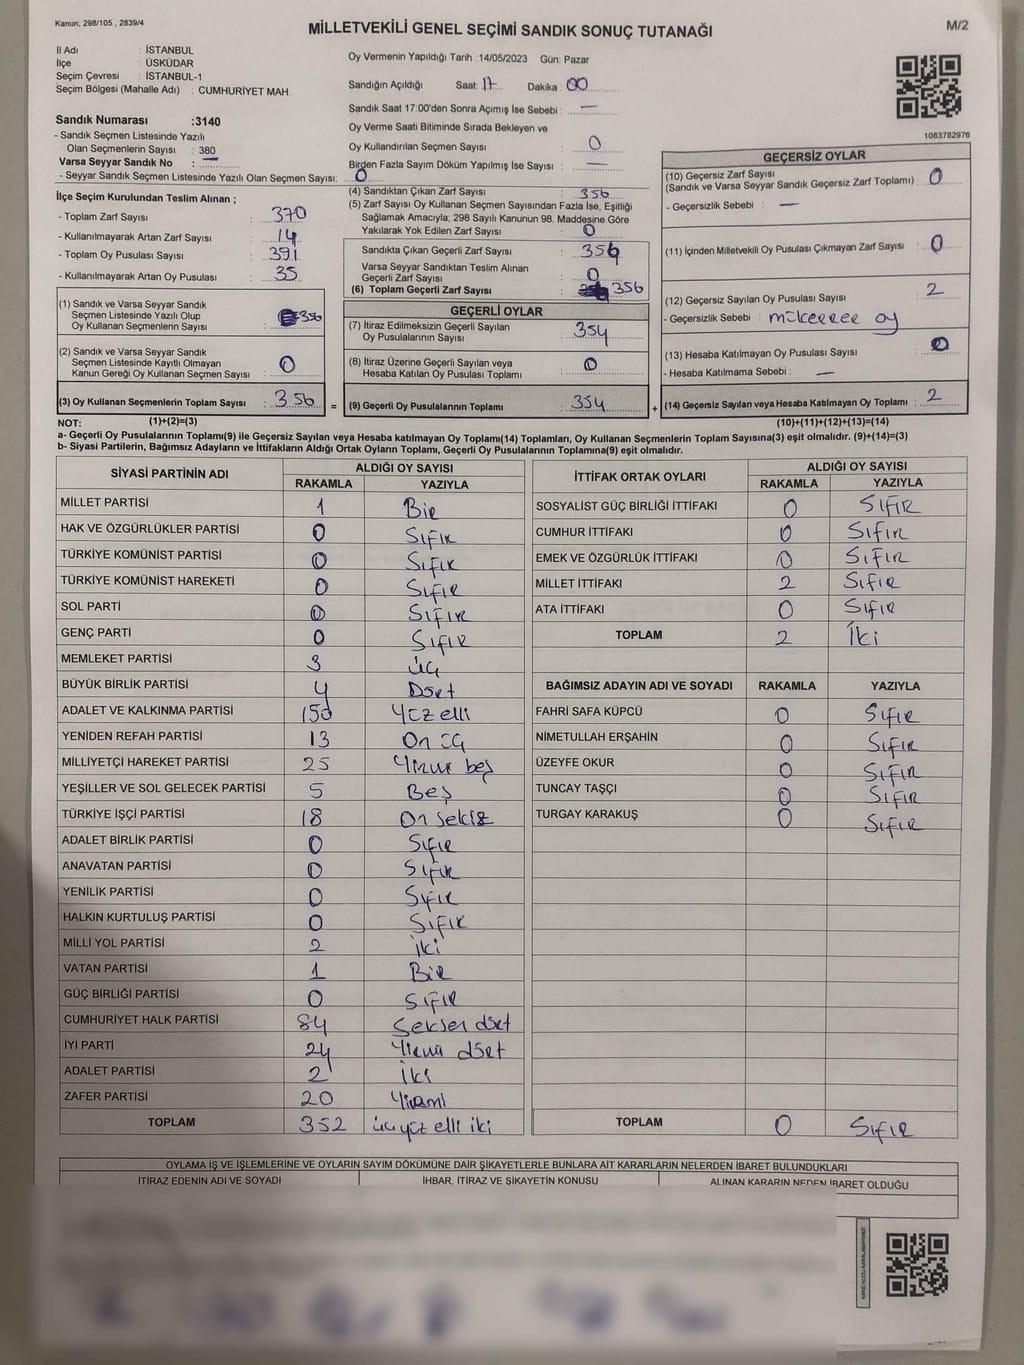 Kanun, 298/105 , 2839/4
MİLLETVEKİLİ GENEL SEÇİMİ SANDIK SONUÇ TUTANAĞI
M/2
İl Adı : İSTANBUL
İlçe : ÜSKÜDAR
Seçim Çevresi : İSTANBUL-1
Seçim Bölgesi (Mahalle Adı) : CUMHURİYET MAH.
Sandık Numarası :3140
- Sandık Seçmen Listesinde Yazılı
Olan Seçmenlerin Sayısı : 380
Varsa Seyyar Sandık No : —
- Seyyar Sandık Seçmen Listesinde Yazılı Olan Seçmen Sayısı: 0
İlçe Seçim Kurulundan Teslim Alınan ;
- Toplam Zarf Sayısı : 370
- Kullanılmayarak Artan Zarf Sayısı : 14
- Toplam Oy Pusulası Sayısı : 391
- Kullanılmayarak Artan Oy Pusulası : 35
(1) Sandık ve Varsa Seyyar Sandık
Seçmen Listesinde Yazılı Olup
Oy Kullanan Seçmenlerin Sayısı : 356
(2) Sandık ve Varsa Seyyar Sandık
Seçmen Listesinde Kayıtlı Olmayan
Kanun Gereği Oy Kullanan Seçmen Sayısı : 0
(3) Oy Kullanan Seçmenlerin Toplam Sayısı : 356
Oy Vermenin Yapıldığı Tarih : 14/05/2023 Gün: Pazar
Sandığın Açıldığı Saat: 17 Dakika : 00
Sandık Saat 17:00'den Sonra Açımış İse Sebebi : —
Oy Verme Saati Bitiminde Sırada Bekleyen ve
Oy Kullandırılan Seçmen Sayısı : 0
Birden Fazla Sayım Döküm Yapılmış İse Sayısı : —
(4) Sandıktan Çıkan Zarf Sayısı : 356
(5) Zarf Sayısı Oy Kullanan Seçmen Sayısından Fazla İse, Eşitliği
Sağlamak Amacıyla; 298 Sayılı Kanunun 98. Maddesine Göre
Yakılarak Yok Edilen Zarf Sayısı : 0
Sandıkta Çıkan Geçerli Zarf Sayısı : 356
Varsa Seyyar Sandıktan Teslim Alınan
Geçerli Zarf Sayısı : 0
(6) Toplam Geçerli Zarf Sayısı : 356
GEÇERLİ OYLAR
(7) İtiraz Edilmeksizin Geçerli Sayılan
Oy Pusulalarının Sayısı : 354
(8) İtiraz Üzerine Geçerli Sayılan veya
Hesaba Katılan Oy Pusulası Toplamı : 0
= (9) Geçerli Oy Pusulalarının Toplamı : 354
1083782976
GEÇERSİZ OYLAR
(10) Geçersiz Zarf Sayısı
(Sandık ve Varsa Seyyar Sandık Geçersiz Zarf Toplamı) : 0
- Geçersizlik Sebebi : —
(11) İçinden Milletvekili Oy Pusulası Çıkmayan Zarf Sayısı : 0
(12) Geçersiz Sayılan Oy Pusulası Sayısı : 2
- Geçersizlik Sebebi : mükerrer oy
(13) Hesaba Katılmayan Oy Pusulası Sayısı : 0
- Hesaba Katılmama Sebebi : —
+ (14) Geçersiz Sayılan veya Hesaba Katılmayan Oy Toplamı : 2
NOT: (1)+(2)=(3) (10)+(11)+(12)+(13)=(14)
a- Geçerli Oy Pusulalarının Toplamı(9) ile Geçersiz Sayılan veya Hesaba katılmayan Oy Toplamı(14) Toplamları, Oy Kullanan Seçmenlerin Toplam Sayısına(3) eşit olmalıdır. (9)+(14)=(3)
b- Siyasi Partilerin, Bağımsız Adayların ve İttifakların Aldığı Ortak Oyların Toplamı, Geçerli Oy Pusulalarının Toplamına(9) eşit olmalıdır.
SİYASİ PARTİNİN ADI ALDIĞI OY SAYISI
RAKAMLA YAZIYLA
MİLLET PARTİSİ 1 Bir
HAK VE ÖZGÜRLÜKLER PARTİSİ 0 Sıfır
TÜRKİYE KOMÜNİST PARTİSİ 0 Sıfır
TÜRKİYE KOMÜNİST HAREKETİ 0 Sıfır
SOL PARTİ 0 Sıfır
GENÇ PARTİ 0 Sıfır
MEMLEKET PARTİSİ 3 üç
BÜYÜK BİRLİK PARTİSİ 4 Dört
ADALET VE KALKINMA PARTİSİ 150 Yüz elli
YENİDEN REFAH PARTİSİ 13 On üç
MİLLİYETÇİ HAREKET PARTİSİ 25 Yirmi beş
YEŞİLLER VE SOL GELECEK PARTİSİ 5 Beş
TÜRKİYE İŞÇİ PARTİSİ 18 On sekiz
ADALET BİRLİK PARTİSİ 0 Sıfır
ANAVATAN PARTİSİ 0 Sıfır
YENİLİK PARTİSİ 0 Sıfır
HALKIN KURTULUŞ PARTİSİ 0 Sıfır
MİLLİ YOL PARTİSİ 2 iki
VATAN PARTİSİ 1 Bir
GÜÇ BİRLİĞİ PARTİSİ 0 Sıfır
CUMHURİYET HALK PARTİSİ 84 Seksen dört
İYİ PARTİ 24 Yirmi dört
ADALET PARTİSİ 2 İki
ZAFER PARTİSİ 20 Yirmi
TOPLAM 352 üçyüz elli iki
İTTİFAK ORTAK OYLARI ALDIĞI OY SAYISI
RAKAMLA YAZIYLA
SOSYALİST GÜÇ BİRLİĞİ İTTİFAKI 0 Sıfır
CUMHUR İTTİFAKI 0 Sıfır
EMEK VE ÖZGÜRLÜK İTTİFAKI 0 Sıfır
MİLLET İTTİFAKI 2 Sıfır
ATA İTTİFAKI 0 Sıfır
TOPLAM 2 İki
BAĞIMSIZ ADAYIN ADI VE SOYADI RAKAMLA YAZIYLA
FAHRİ SAFA KÜPCÜ 0 Sıfır
NİMETULLAH ERŞAHİN 0 Sıfır
ÜZEYFE OKUR 0 Sıfır
TUNCAY TAŞÇI 0 Sıfır
TURGAY KARAKUŞ 0 Sıfır
TOPLAM 0 Sıfır
OYLAMA İŞ VE İŞLEMLERİNE VE OYLARIN SAYIM DÖKÜMÜNE DAİR ŞİKAYETLERLE BUNLARA AİT KARARLARIN NELERDEN İBARET BULUNDUKLARI
İTİRAZ EDENİN ADI VE SOYADI İHBAR, İTİRAZ VE ŞİKAYETİN KONUSU ALINAN KARARIN NEDEN İBARET OLDUĞU